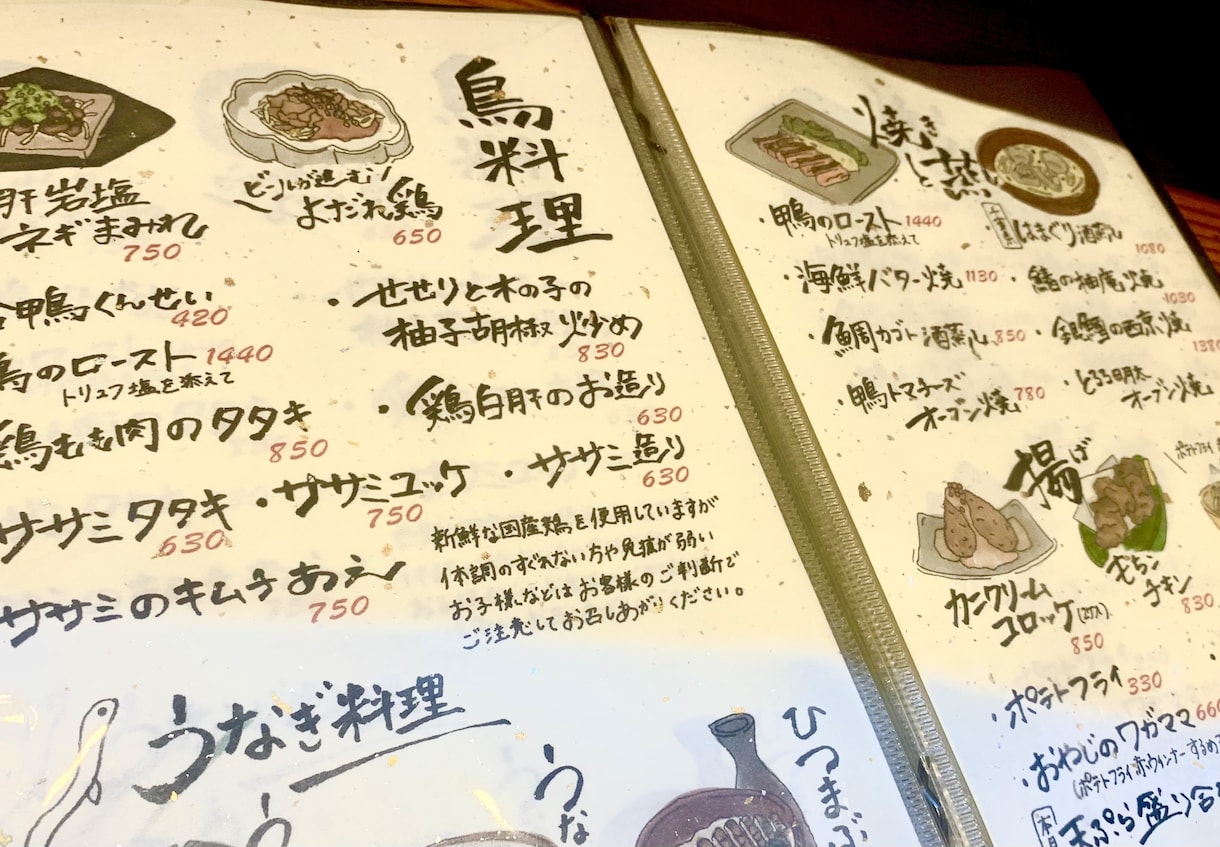 鳥料理
ビールが進む!
よだれ鶏
650
肝岩塩
ネギまみれ
750
・せせりと木の子の
柚子胡椒炒め
830
合鴨くんせい
420
鴨のロースト 1440
トリュフ塩を添えて
・鶏白肝のお造り
630
鶏もも肉のタタキ
850
・ササミ造り
630
・ササミユッケ
750
ササミタタキ
630
ササミのキムチあえ
750
新鮮な国産鶏を使用していますが
体調のすぐれない方や免疫が弱い
お子様などはお客様のご判断で
ご注意してお召しあがりください。
うなぎ料理
うな
ひつまぶ
焼きと蒸し
・鴨のロースト 1440
トリュフ塩を添えて
はまぐり酒蒸し
1080
・海鮮バター焼 1130
・鰆の柚庵焼
1030
・鯛カブト酒蒸し 850
・銀鱈の西京焼
1380
・鴨トマチーズ
オーブン焼 780
・とろろ明太
オーブン焼
揚げ
ポテトフライ
カニクリーム
コロッケ(2ケ入)
850
むらん
チキン
830
・ポテトフライ 330
・おやじのワガママ 660
(ポテトフライ赤ウィンナーするめ
天ぷら盛り合